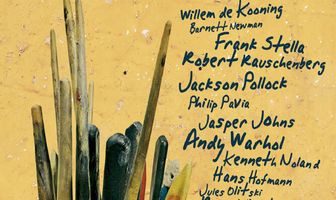 Willem de Kooning
Barnett Newman
Frank Stella
Robert Rauschenberg
Jackson Pollock
Philip Pavia
Jasper Johns
Andy Warhol
Kenneth Noland
Hans Hofmann
Jules Olitski